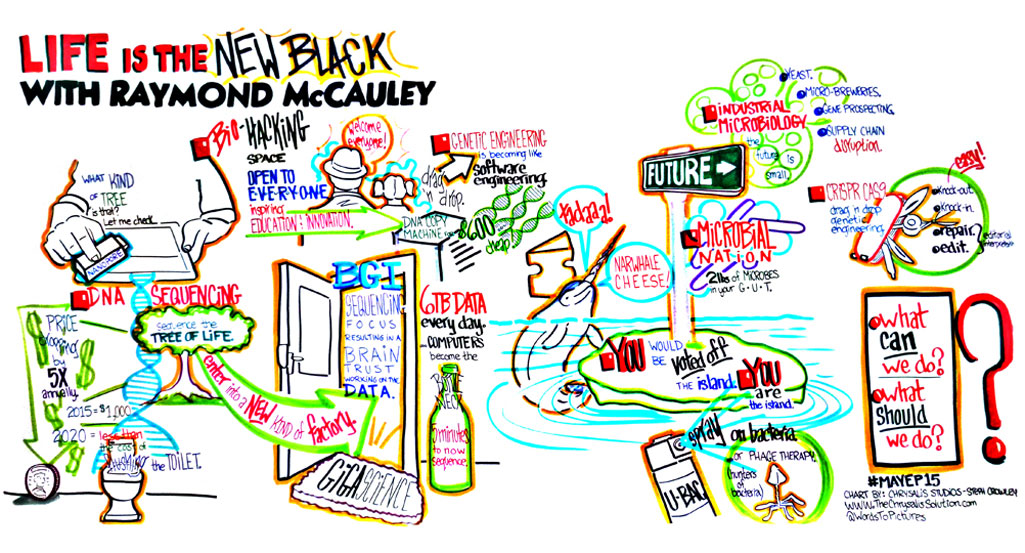 LIFE IS THE NEW BLACK
WITH RAYMOND McCAULEY
WHAT KIND
OF TREE
is that?
Let me check.
NANOPORE
DNA SEQUENCING
PRICE
dropping
by
5X
annually.
2015 = $1,000
2020 = less than
the cost of
flushing the TOILET.
sequence the
TREE OF LIFE.
enter into a NEW kind of factory.
BIO-HACKING
SPACE
OPEN TO
EVERYONE
inspiring
EDUCATION & INNOVATION.
welcome
everyone!
GENETIC ENGINEERING
is becoming like
software
engineering.
drag
n'
drop.
DNA COPY
MACHINE for
$600
cheap
BGI
SEQUENCING
FOCUS
RESULTING IN A
BRAIN
TRUST
WORKING ON THE
DATA.
GIGASCIENCE
6TB DATA
every day.
COMPUTERS
become the
BOTTLE
NECK
5 minutes
to now
sequence.
tadaaa!
NARWHALE
CHEESE!
FUTURE
INDUSTRIAL
MICROBIOLOGY
the
future is
small.
YEAST.
MICRO-BREWERIES.
GENE PROSPECTING.
SUPPLY CHAIN
disruption.
MICROBIAL
NATION
2lbs of MICROBES
in your G.U.T.
YOU WOULD
BE voted off
THE island.
YOU
are
the island.
spray on bacteria
or PHAGE THERAPY.
(hunters
of
bacteria)
U-BAC
CRISPR CAS9
drag n' drop
genetic
engineering.
easy!
knock-out.
knock-in.
repair.
edit.
what
can
we do?
what
should
we do?
#MAYEP15
CHART BY: CHRYSALIS STUDIOS - STEPH CROWLEY
WWW.TheChrysalisSolution.com
@WordsToPictures